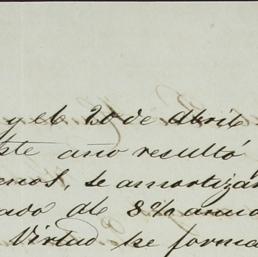 y el 20 de Abril
este año resultó
enos, se amortizán
ado al 8% anu
Virtud se forma